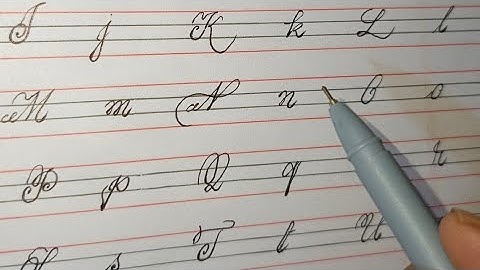 J j K k L l
M m N n O o
P p Q q r
s T t U